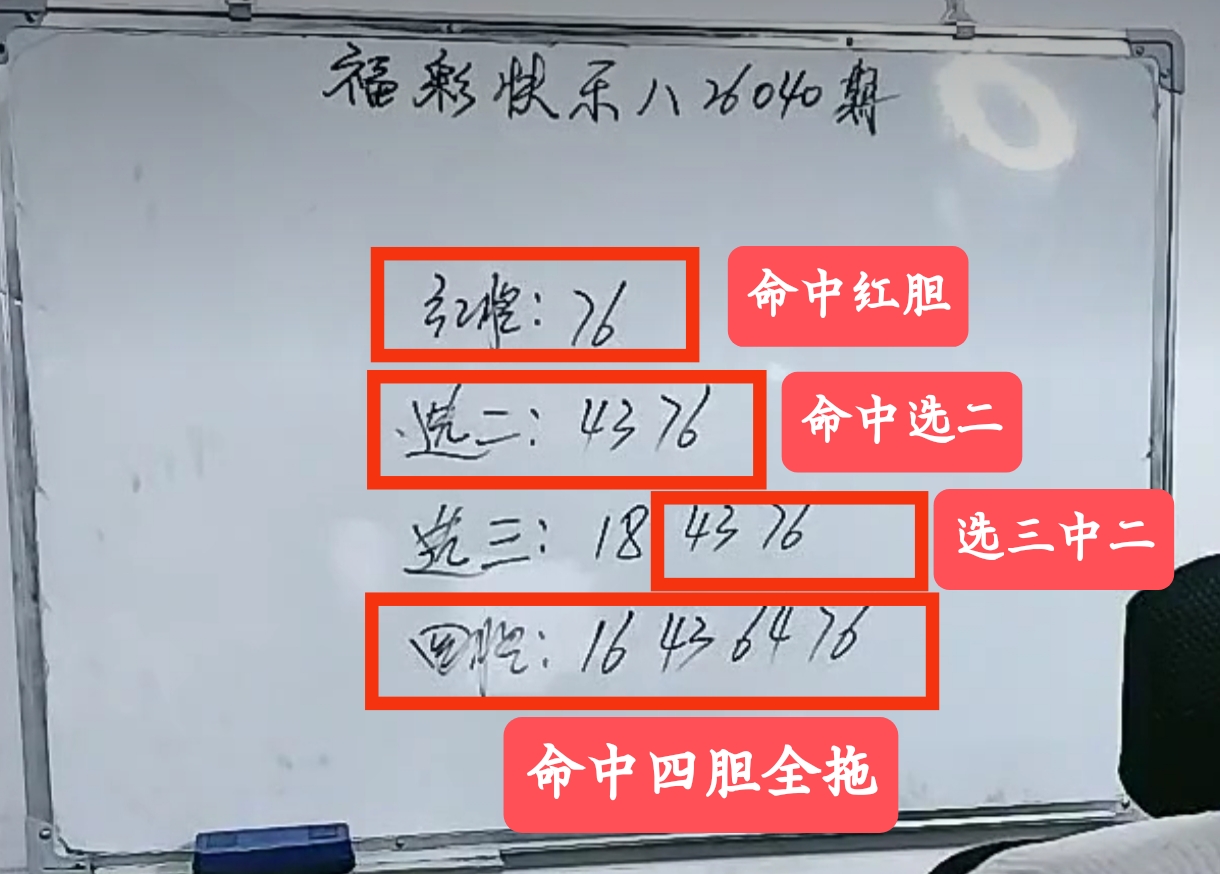 福彩快乐八26040期
红胆：76
命中红胆
选二：43 76
命中选二
选三：18 43 76
选三中二
四胆：16 43 64 76
命中四胆全拖